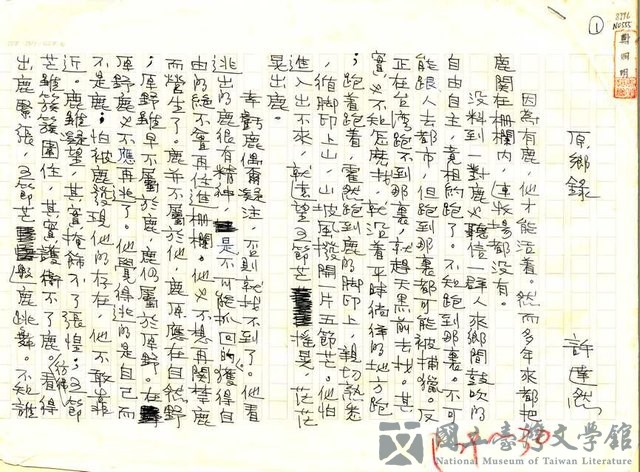 ①
8396
N0555
鄭烱明
原鄉錄
許達然
因為有鹿，他才能活着。然而多年來都把
鹿関在柵欄內，連牧場都沒有。
沒料到一對鹿也聽信一群人來鄉間鼓吹的
自由自主，竟相約跑了。不知跑到那裏。不可
能跟人去都市，但跑到那裏都可能被捕獵。反
正在台灣跑不到那裏，就趁天黑前去找。其
實也不知怎麽找，就沿着平時徜徉的地方跑
；跑着跑着，霍然跑到鹿的脚印上，親切熟悉
，循脚印上山，山坡風撥開一片五節芒。他怕
進入出不來，就畫望五節芒搖晃，茫茫
晃出鹿。
幸虧鹿偶爾凝注，否則就找不到了。他看
逃出的鹿很有精神，是不可能抓回的。獲得自
由的絕不會再住進柵欄。他也不想再関着鹿
而營生了。鹿並不屬於他，鹿原應在自然野
；原野雖早不屬於鹿，鹿仍屬於原野。在
原野鹿也不應再逃了。他覺得逃的是自己而
不是鹿；怕被鹿發現他的存在，他不敢靠
近。鹿雖凝望，其實掩飾不了張惶；五節
芒雖簇簇圍住，其實護衛不了鹿。看得
出鹿緊張，五節芒彷彿般鹿跳舞。不知誰
國立臺灣文學館
National Museum of Taiwan Literature